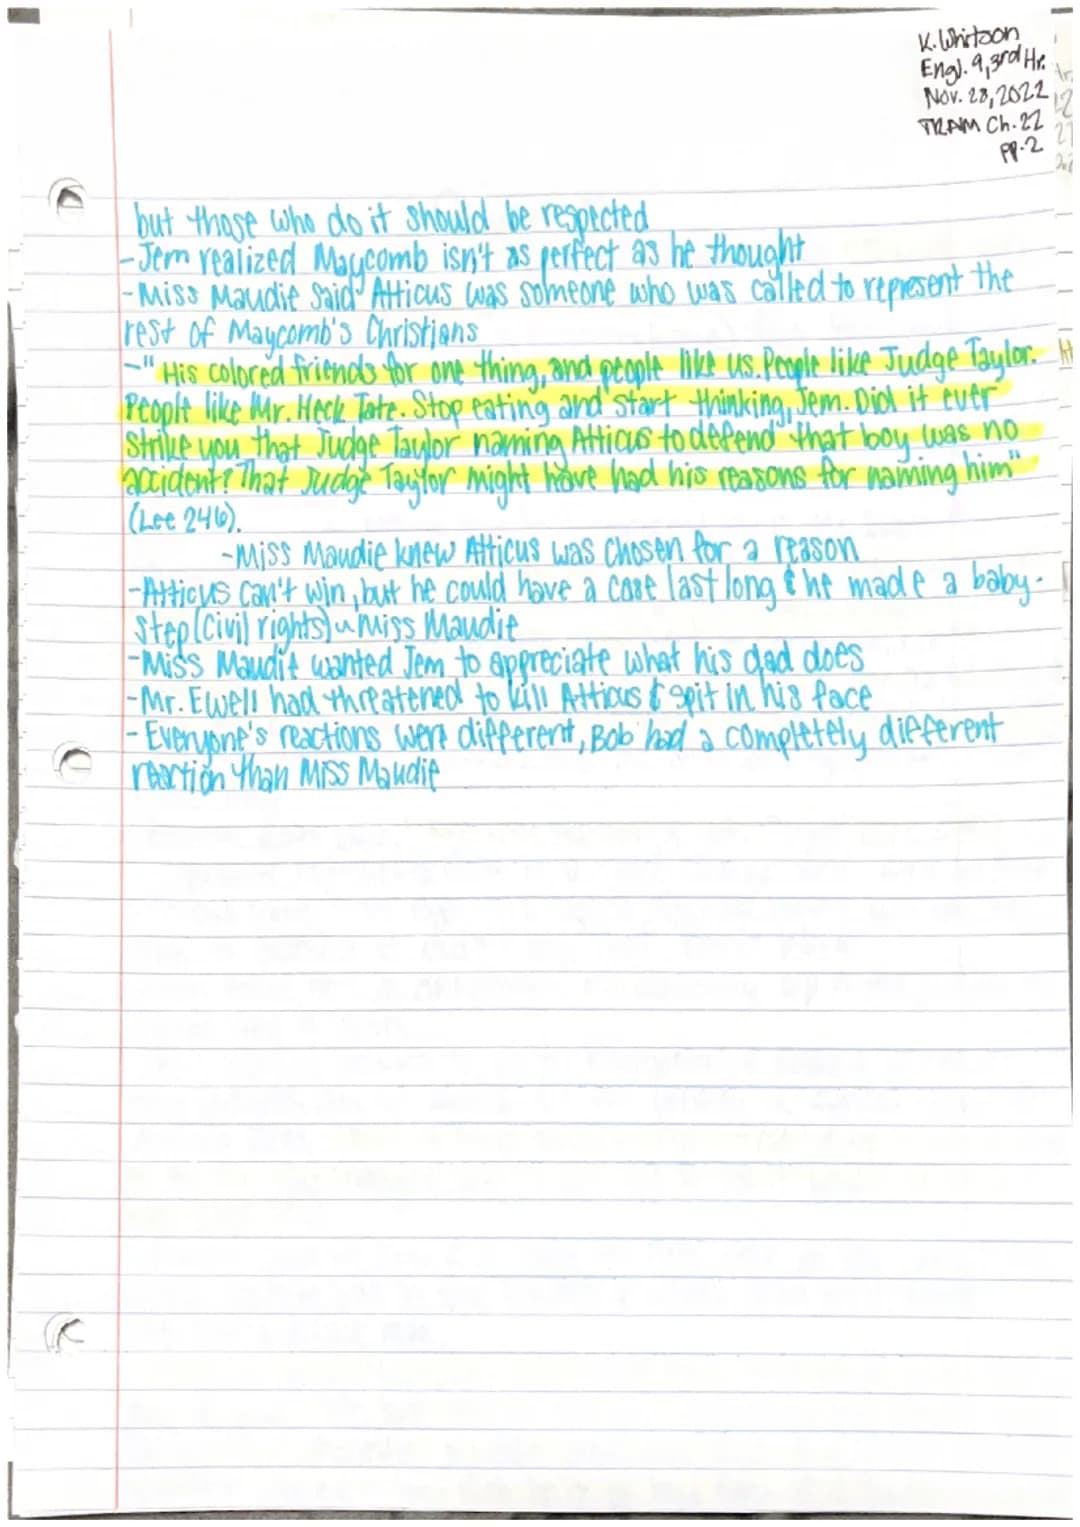 K. Whitson
Engl. 9, 3rd Hr.
Nov. 28, 2022
TKAM Ch. 22
pp. 2
but those who do it should be respected
-Jem realized Maycomb isn't as perfect as he thought
-Miss Maudie said Atticus was someone who was called to represent the
rest of Maycomb's Christians
-"His colored friends for one thing, and people like us. People like Judge Taylor.
People like Mr. Heck Tate. Stop eating and start thinking, Jem. Did it ever
strike you that Judge Taylor naming Atticus to defend that boy was no
accident? That Judge Taylor might have had his reasons for naming him"
(Lee 246).
-Miss Maudie knew Atticus was chosen for a reason
-Atticus can't win, but he could have a case last long & he made a baby-
step (civil rights) ~ Miss Maudie
-Miss Maudie wanted Jem to appreciate what his dad does
-Mr. Ewell had threatened to kill Atticus & spit in his face
- Everyone's reactions were different, Bob had a completely different
reaction than Miss Maudie